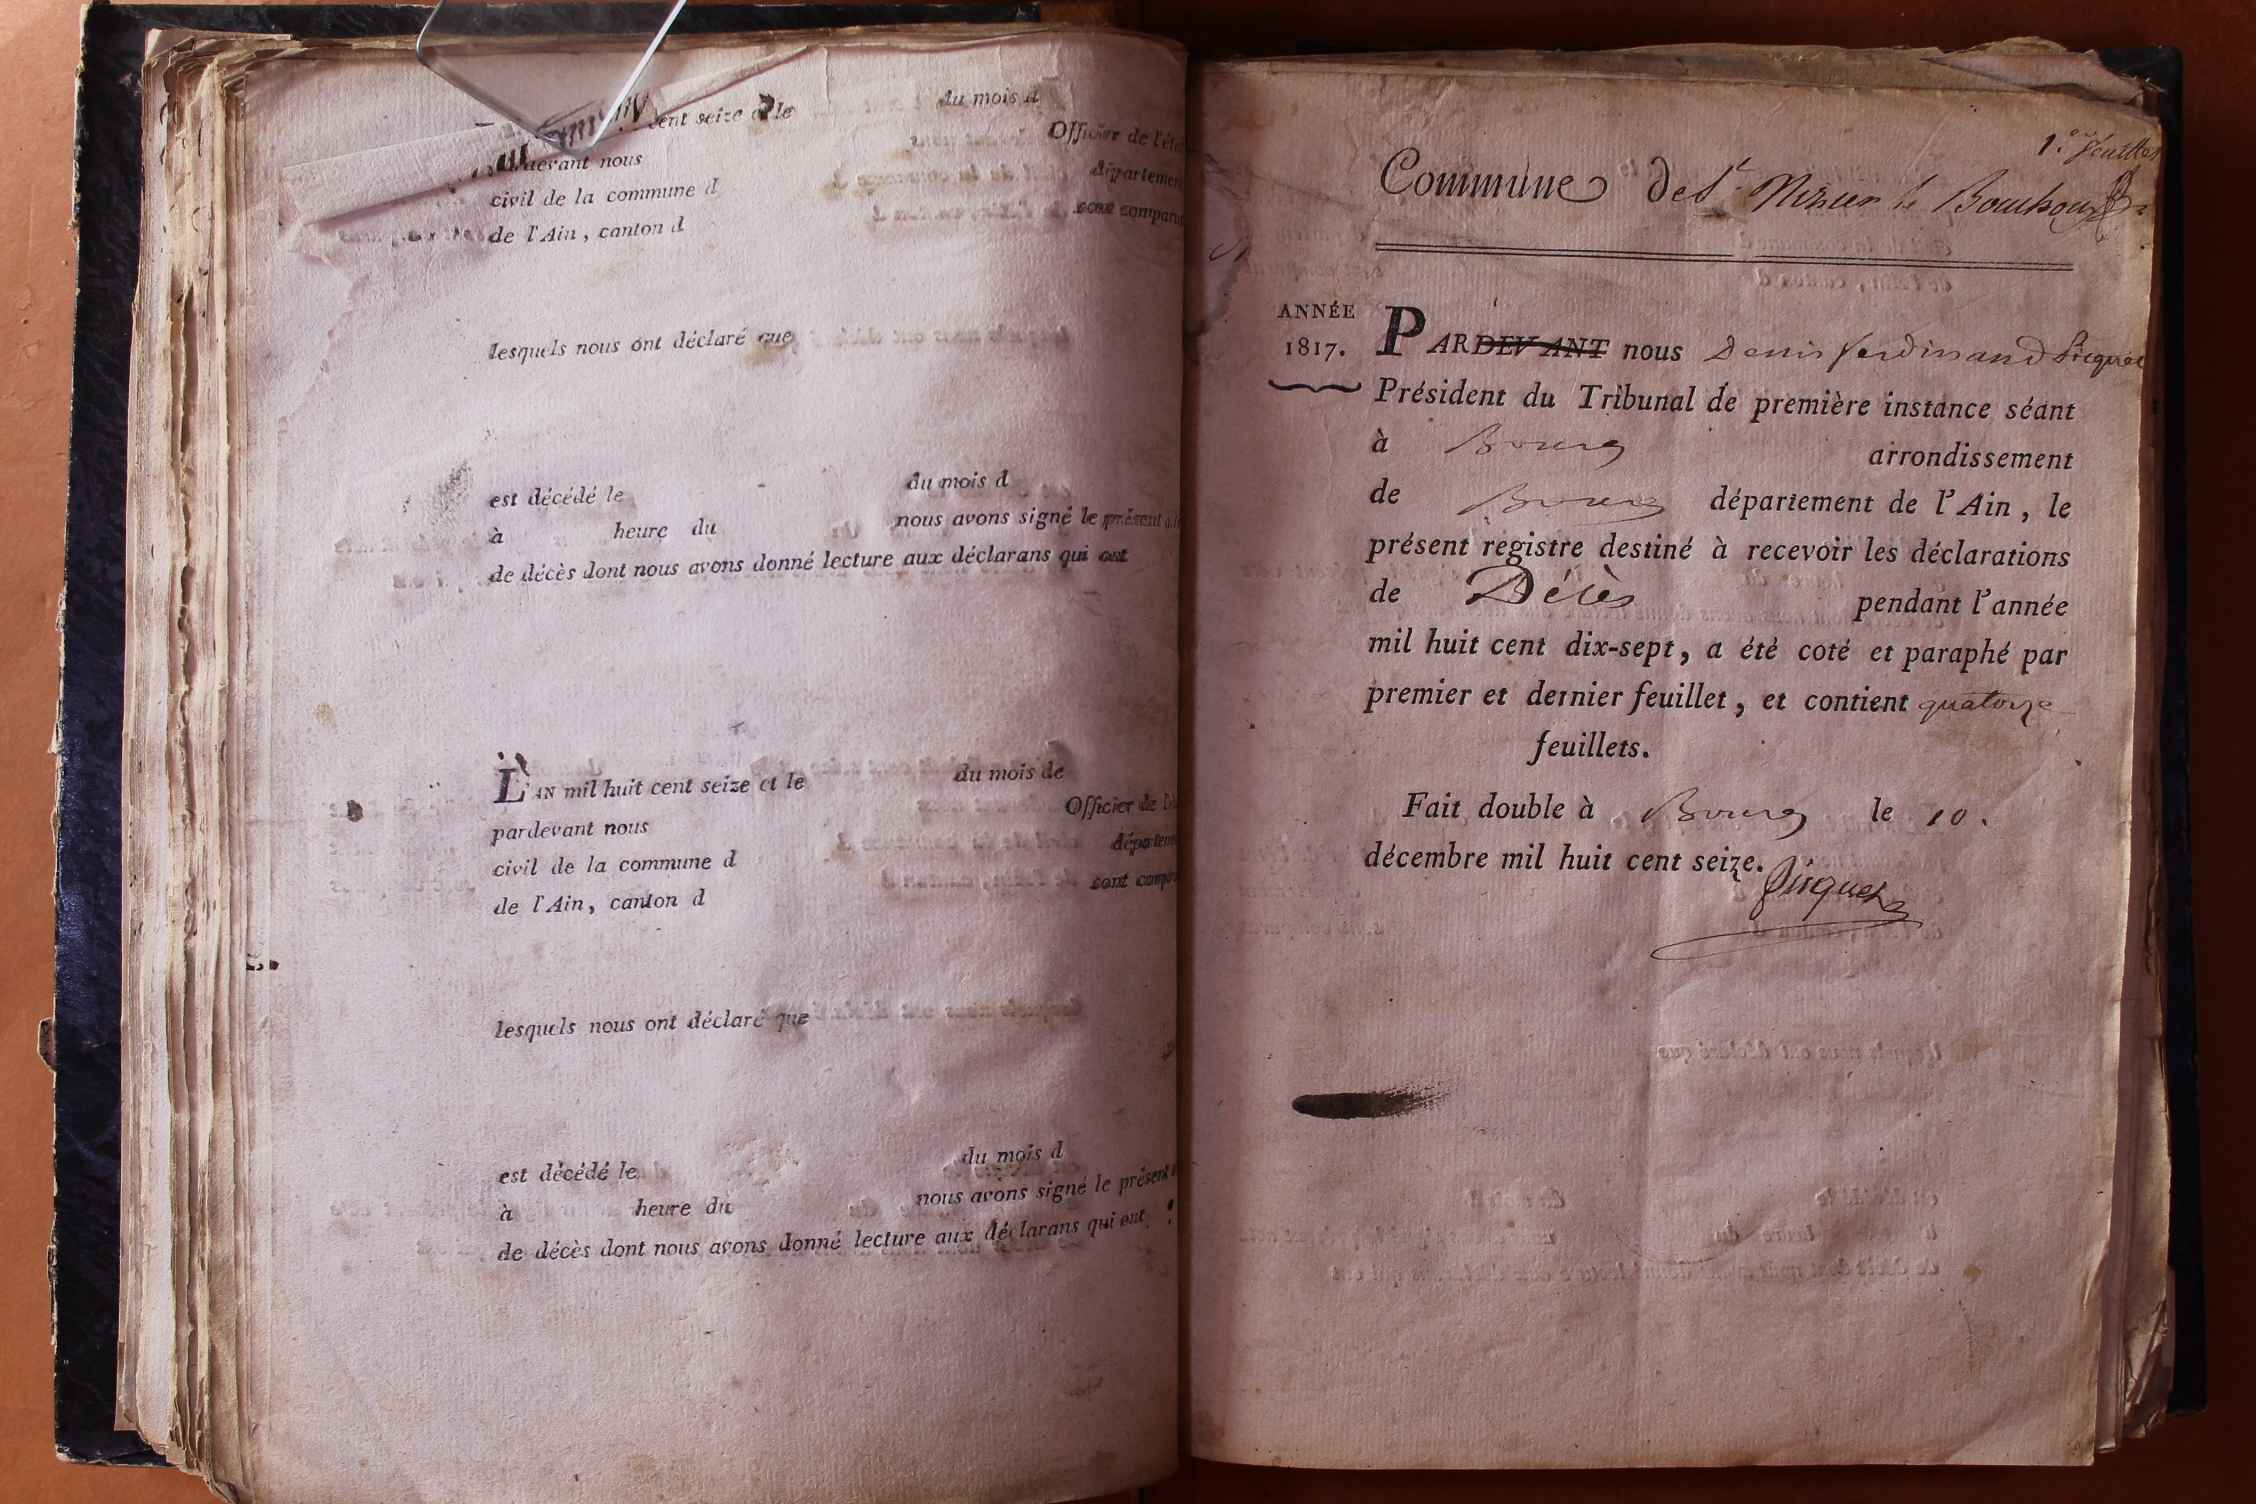 cent seize et le du mois d
devant nous Officier de l'ét
civil de la commune d département
de l'Ain, canton d sont comparu
lesquels nous ont déclaré que
est décédé le du mois d
à heure du nous avons signé le présent
de décès dont nous avons donné lecture aux déclarans qui ont
L'AN mil huit cent seize et le du mois de
pardevant nous Officier de
civil de la commune d départem
de l'Ain, canton d sont compa
lesquels nous ont déclaré que
est décédé le du mois d
à heure du nous avons signé le présent
de décès dont nous avons donné lecture aux déclarans qui ont
1.er feuillet
Commune de St Nizier le Bouchoux
ANNÉE
1817.
PARDEVANT nous Denis ferdinand Picquet
Président du Tribunal de première instance séant
à Bourg arrondissement
de Bourg département de l'Ain, le
présent registre destiné à recevoir les déclarations
de Décès pendant l'année
mil huit cent dix-sept, a été coté et paraphé par
premier et dernier feuillet, et contient quatorze
feuillets.
Fait double à Bourg le 10.
décembre mil huit cent seize.
Picquet